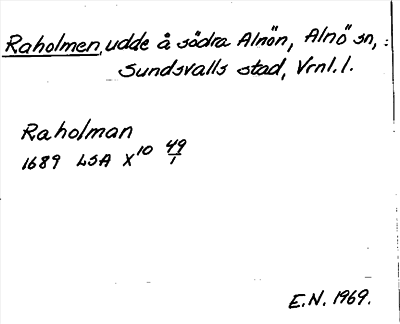 Raholmen, udde å södra Alnön, Alnö sn,
Sundsvalls stad, Vrnl. l.
Raholman
1689 LSA X¹⁰ 49/1
E.N. 1969.